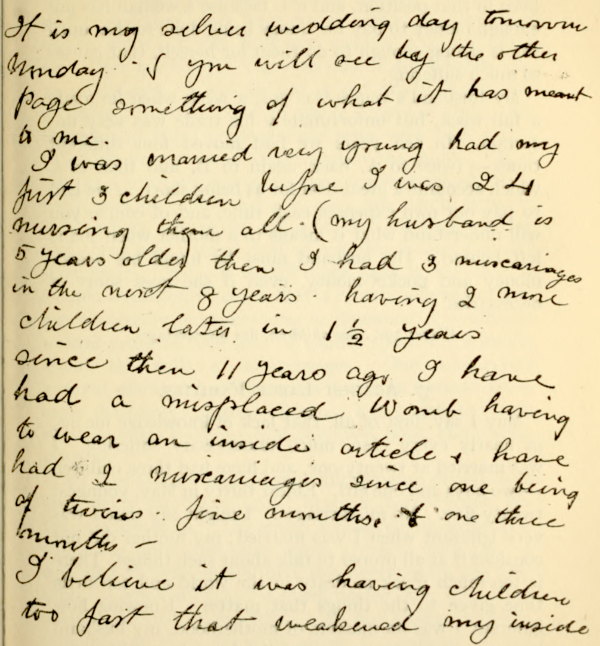 It is my silver wedding day tomorrow
Monday & you will see by the other
page something of what it has meant
to me.
I was married very young had my
first 3 children before I was 24
nursing them all. (my husband is
5 years older) then I had 3 miscariages
in the next 8 years. having 2 more
children later in 1½ years
since then 11 years ago I have
had a misplaced womb having
to wear an inside article & have
had 2 miscariages since one being
of twins. five months. & one three
months —
I believe it was having children
too fast that weakened my inside